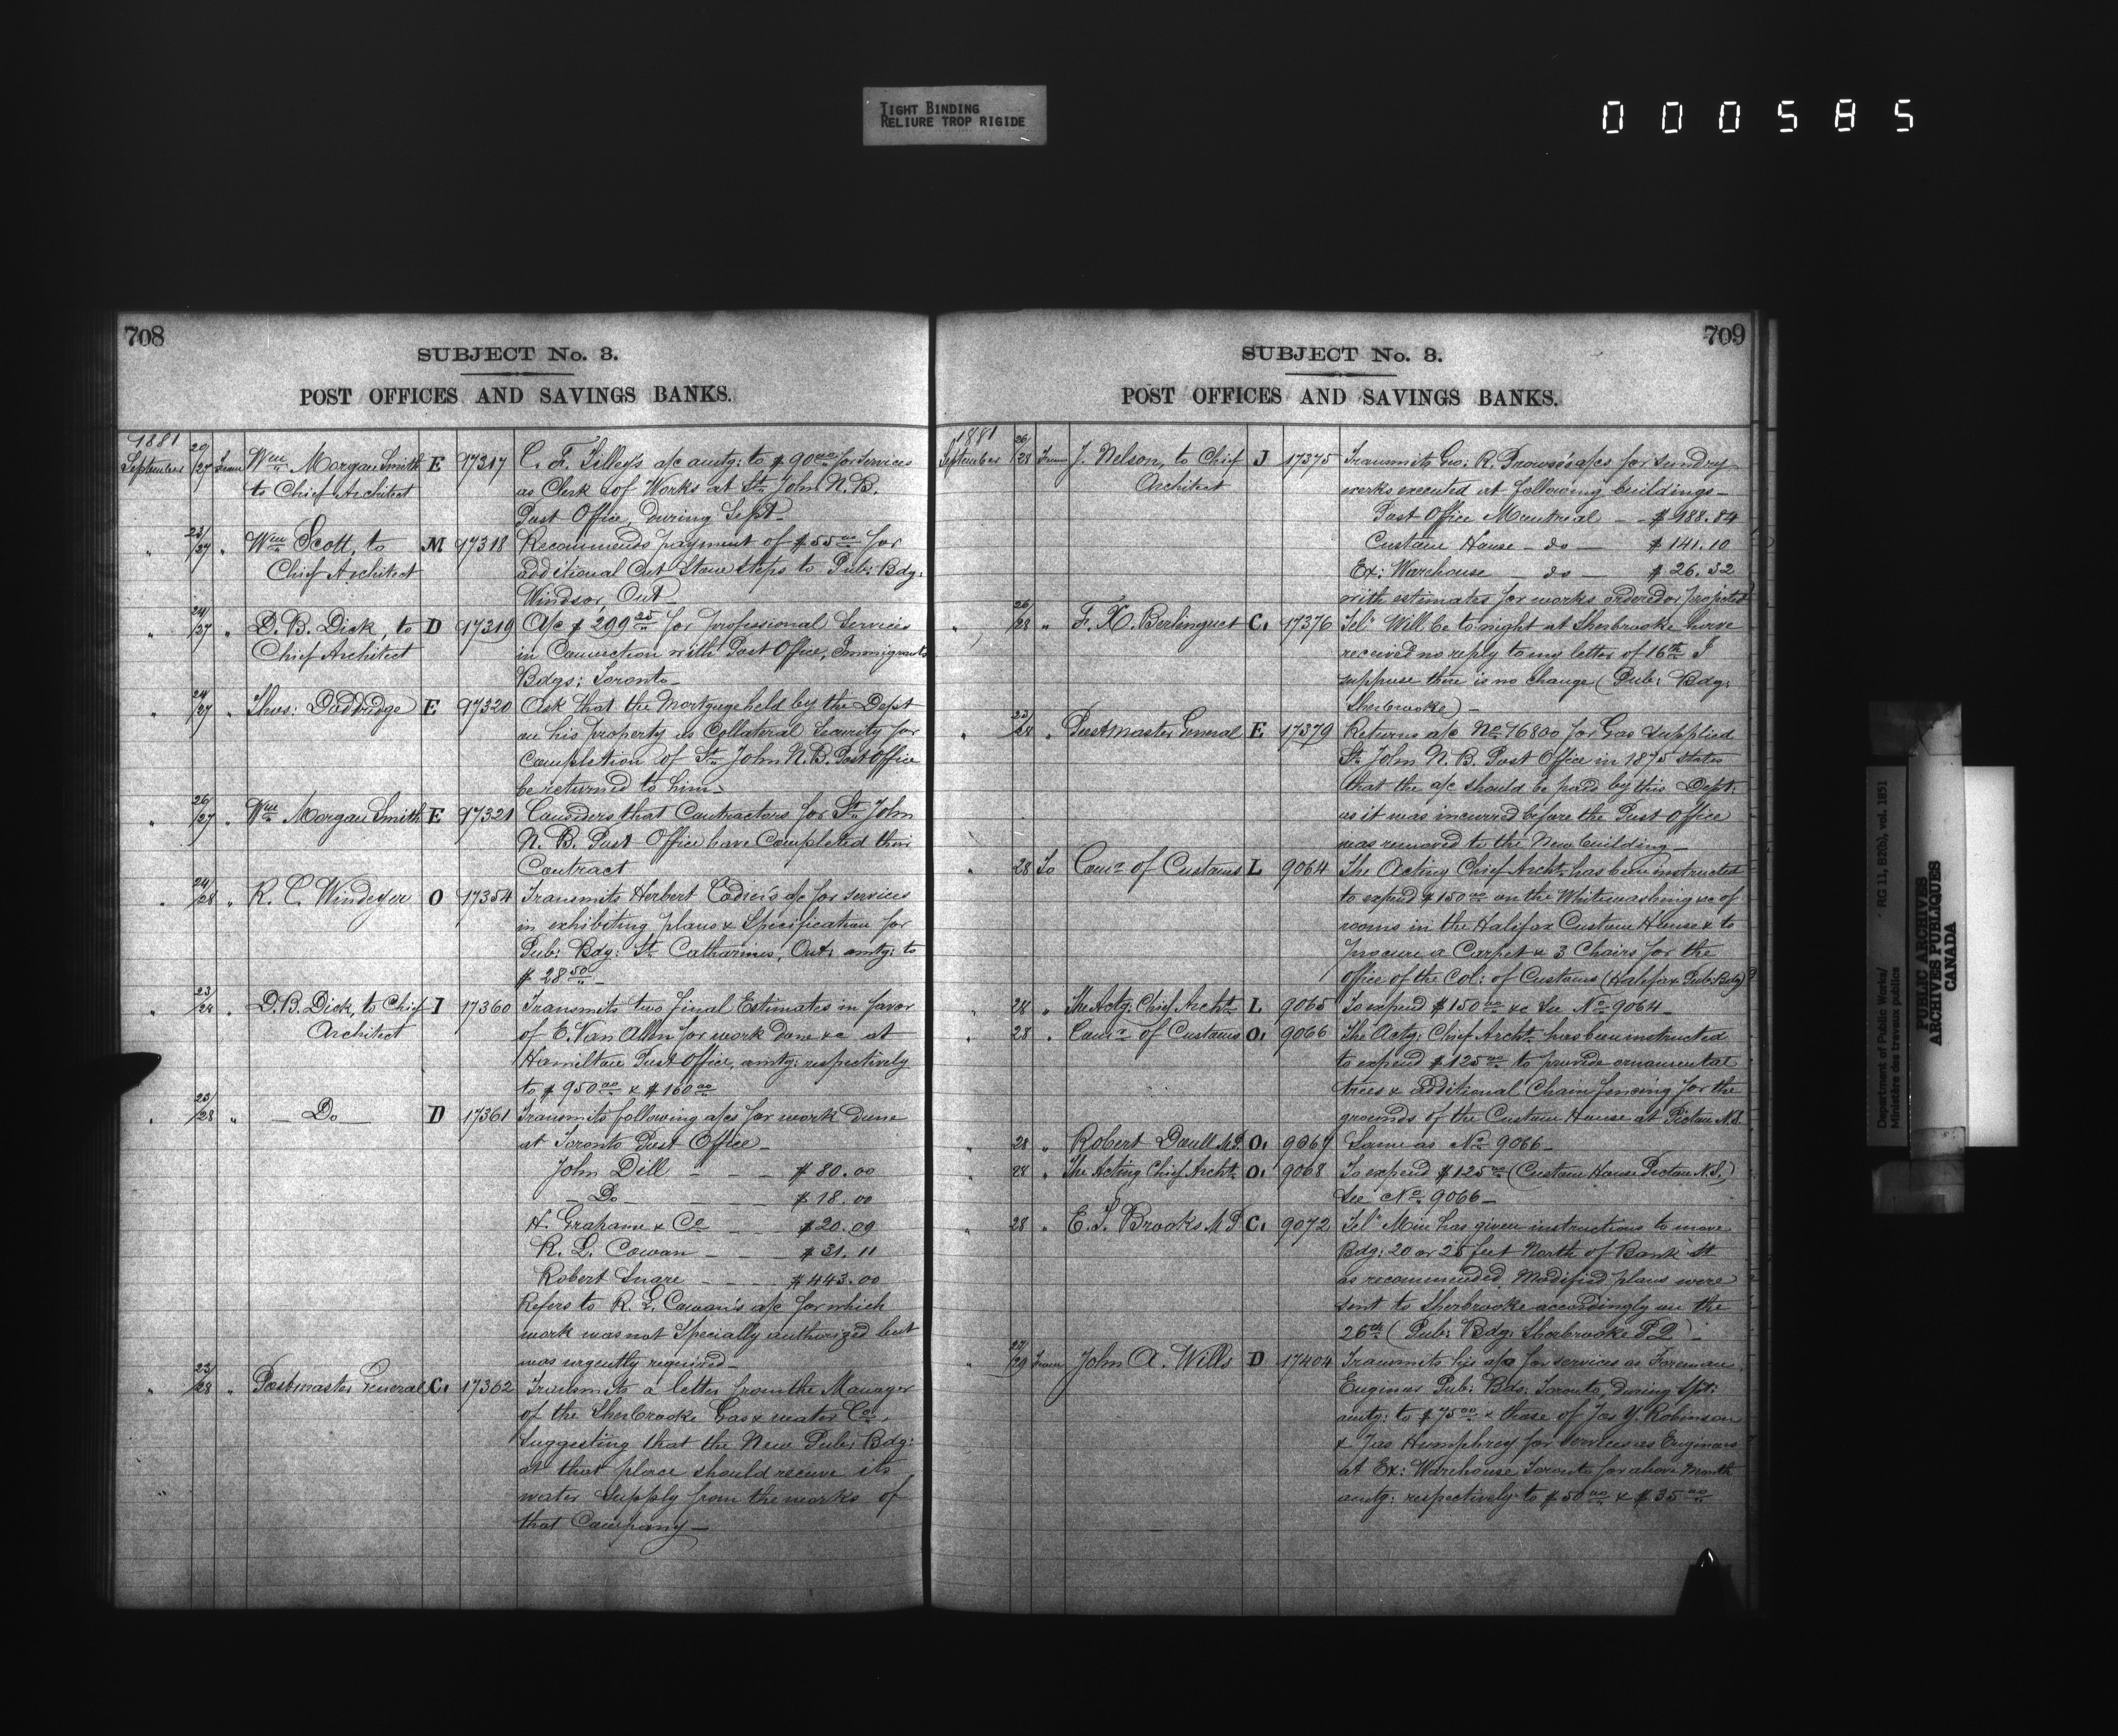 TIGHT BINDING
RELIURE TROP RIGIDE
000585
708
SUBJECT No. 3.
POST OFFICES AND SAVINGS BANKS.
1881
September 20/27 From Wm Morgan Smith E 17317 C. F. Tilley's a/c amtg: to $90.00 for services
to Chief Architect as Clerk of Works at St. John N.B.
Post Office, during Sept_
" 23/27 " Wm Scott, to M 17318 Recommends payment of $55.00 for
Chief Architect additional Cut Stone steps to Pub: Bdg:
Windsor, Ont
" 24/27 " D. B. Dick, to D 17319 A/c $299.25 for professional Services
Chief Architect in Connection with Post Office, Immigrants
Bdgs: Toronto_
" 24/27 " Thos: Doddridge E 17320 Ask that the Mortgage held by the Dept
on his property as Collateral Security for
Completion of St. John N.B. Post Office
be returned to him_
" 26/27 " Wm Morgan Smith E 17321 Considers that Contractors for St. John
N. B. Post Office have Completed their
Contract
" 24/28 " R. C. Windeyer O 17354 Transmits Herbert a/c for services
in exhibiting plans & Specification for
Pub: Bdg: St. Catharines, Ont: amtg: to
$28.50_
" 23/28 " D. B. Dick, to Chief I 17360 Transmits two final Estimates in favor
Architect of E. Van Allen for work done &c at
Hamilton Post Office, amtg: respectively
to $950.00 & $160.00
" 23/28 " _ Do _ D 17361 Transmits following a/cs for work done
at Toronto Post Office_
John Dill - - - $80.00
_ Do _ $18.00
H. Graham & Co - - $20.09
R. L. Cowan - - $31.11
Robert Snare - - - $443.00
Refers to R. L. Cowan's a/c for which
work was not Specially authorized but
was urgently required_
" 23/28 " Postmaster General C. 17362 Transmits a letter from the Manager
of the Sherbrooke Gas & water Co.
Suggesting that the New Pub: Bdg:
at that place should receive its
water Supply from the works of
that Company_
709
SUBJECT No. 3.
POST OFFICES AND SAVINGS BANKS.
1881
September 26/28 From J. Nelson, to Chief J 17375 Transmits Geo: R. Prowse's a/cs for sundry
Architect works executed at following buildings_
Post Office Montreal _ _ $188.84
Custom House _ do _ $141.10
Ex: Warehouse do _ $26.32
with estimates for works ordered or projected
" 26/28 " F. X. Berlinguet C. 17376 Tel. Will be to night at Sherbrooke have
received no reply to my letter of 16th I
suppose there is no change (Pub: Bdg:
Sherbrooke)_
" 23/28 " Postmaster General E 17379 Returns a/c No 76800 for Gas Supplied
St. John N. B. Post Office in 1875 states
that the a/c should be paid by this Dept:
as it was incurred before the Post Office
was removed to the New building_
" 28 To Comr of Customs L 9064 The Acting Chief Archt. has been instructed
to expend $150.00 on the Whitewashing &c of
rooms in the Halifax Custom House & to
procure a Carpet & 3 Chairs for the
office of the Col: of Customs (Halifax Pub: Bdg)
" 28 " The Actg: Chief Archt. L 9065 To expend $150.00 &c See No 9064_
" 28 " Comr of Customs O. 9066 The Actg: Chief Archt. has been instructed
to expend $125.00 to provide ornamental
trees & additional Chain fencing for the
grounds of the Custom House at Pictou N.S.
" 28 " Robert Doull M.P. O. 9067 Same as No 9066_
" 28 " The Acting Chief Archt. O. 9068 To expend $125.00 (Custom House Pictou N.S.)
See No 9066_
" 28 " E. T. Brooks M P C. 9072 Tel. Min has given instructions to move
Bdg: 20 or 25 feet North of Bank St
as recommended. Modified plans were
sent to Sherbrooke accordingly on the
26th (Pub: Bdg: Sherbrooke P.Q.)_
" 27/29 From John A. Wills D 17404 Transmits his a/c for services as Foreman
Engineer Pub: Bds: Toronto, during Spt:
amtg: to $75.00 & those of Jas Y. Robinson
& Jas Humphrey for services as Engineers
at Ex: Warehouse Toronto for above Month
amtg: respectively to $50.00 & $35.00
Department of Public Works/ RG 11, B2(b), vol. 1851
Ministère des travaux publics
PUBLIC ARCHIVES
ARCHIVES PUBLIQUES
CANADA